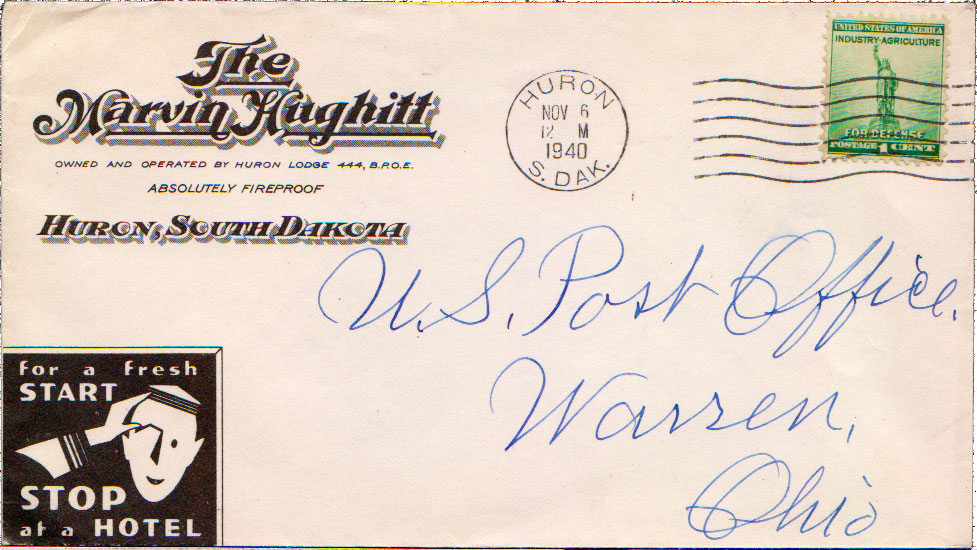 The
Marvin Hughitt
OWNED AND OPERATED BY HURON LODGE 444, B.P.O.E.
ABSOLUTELY FIREPROOF
HURON, SOUTH DAKOTA
HURON
NOV 6
12 M
1940
S. DAK.
UNITED STATES OF AMERICA
INDUSTRY·AGRICULTURE
FOR DEFENSE
POSTAGE 1 CENT
U.S. Post Office.
Warren,
Ohio
for a fresh
START
STOP
at a HOTEL